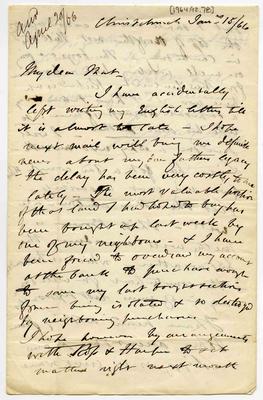 [1964/92.78]
ansd
April 20/66
Christchurch Jan 15/66
My dear Matt.
I have accidentally
left writing my English letters till
it is almost too late - I hope
next mail will bring me definite
news about my dear father's legacy
- the delay has been very costly to me
lately - The most valuable portion
of the land I had hoped to buy has
been bought up last week by
one of my neighbours - & I have
been forced to overdraw my account
at the bank to purchase enough
to save my last bought section
from being isolated & so destroyed
by neighbouring purchasers.
I hope however by arrangements
with & Harper to set
matters right next month